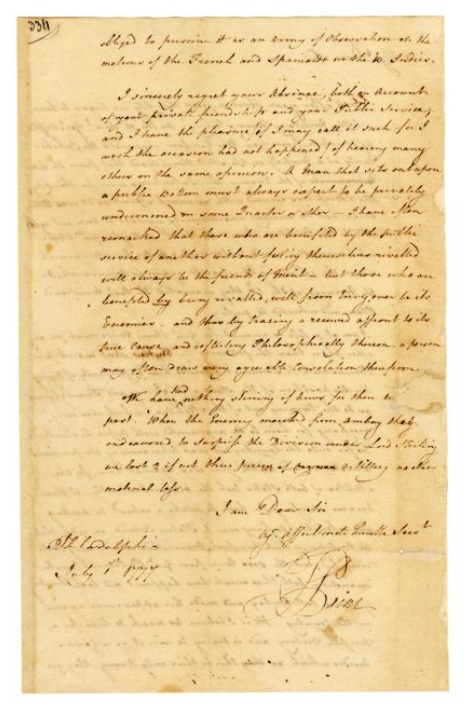 334
obliged to pursue it as an army of Observation on the
motions of the French and Spaniards in the W. Indies.
I sincerely regret your Absence, both on Account
of your private friendship and your Public Service,
and I have the pleasure (if I may call it such for I
wish the occasion had not happened) of hearing many
others in the same opinion. A Man that sets out upon
a public Bottom must always expect to be privately
undermined in some Quarter or other — I have often
remarked that those who are benefited by the public
service of another without feeling themselves rivalled
will always be the friends of Merit — but those who are
benefited by being rivalled, will from Envy, ever be its
Enemies — and thus by tracing a received affront to its
true Cause and reflecting Philosophically thereon, a person
may often draw very agreeable Consolation therefrom.
We have had nothing stirring of news for then
past. When the Enemy marched from Amboy they
endeavored to surprise the Division under Lord Stirling
we lost 2 if not three pieces of artillery no other
material loss
I am Dear Sir
yr. affectionate humble Servt
Philadelphia
July 1st 1777
Paine